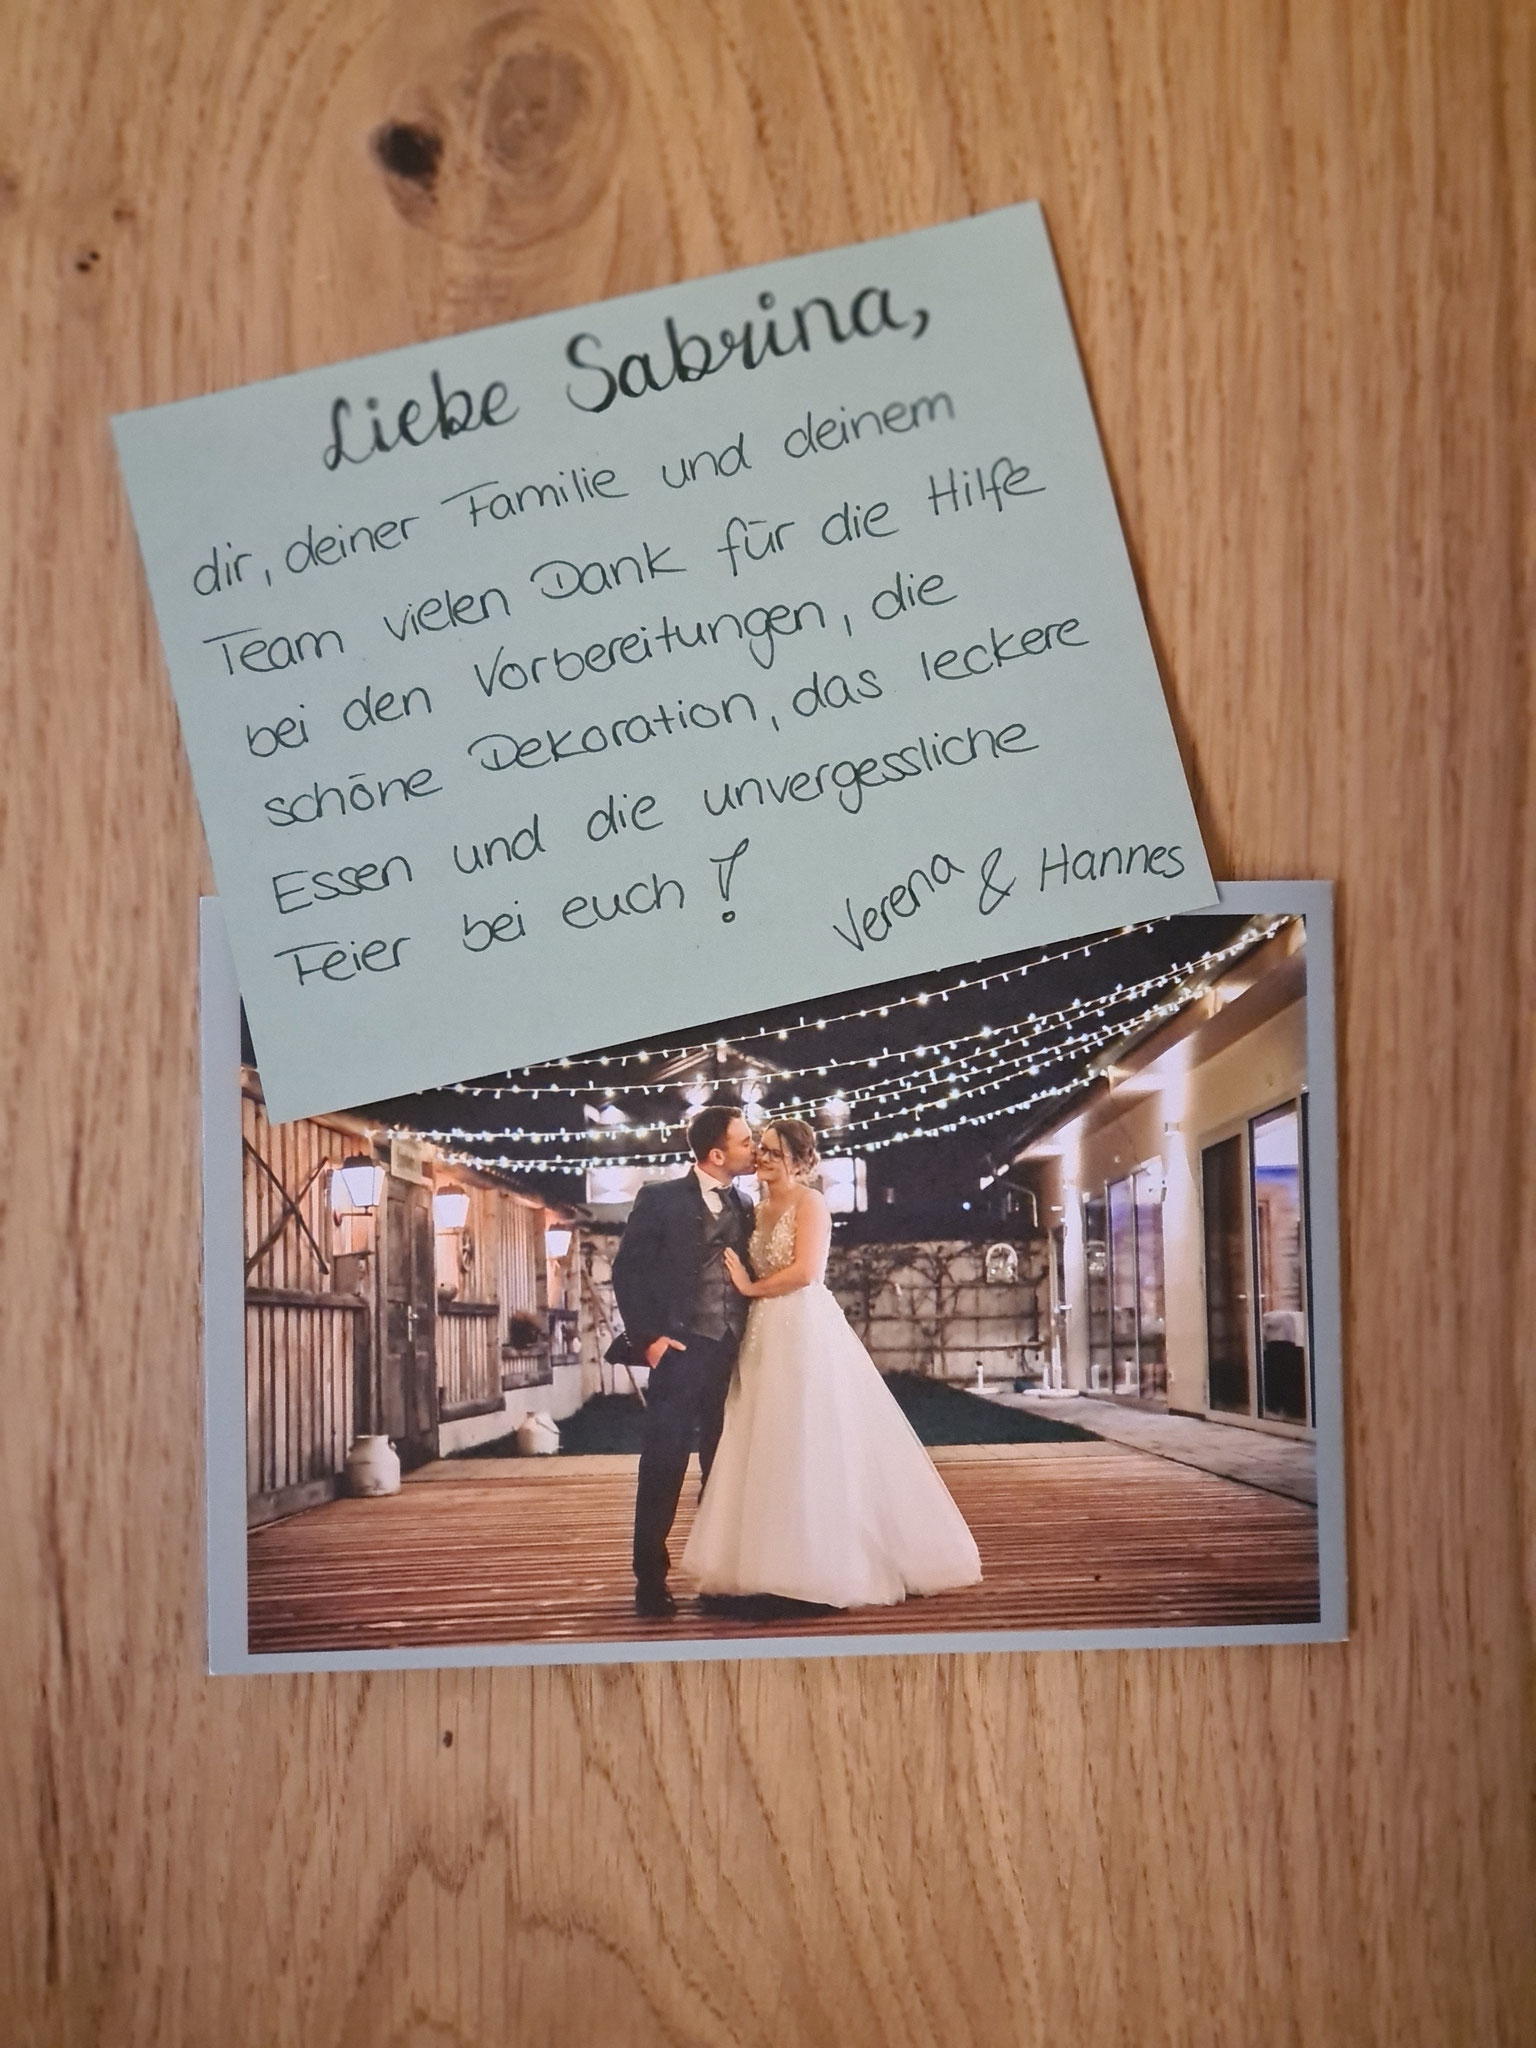 Liebe Sabrina,
dir, deiner Familie und deinem
Team vielen Dank für die Hilfe
bei den Vorbereitungen, die
schöne Dekoration, das leckere
Essen und die unvergessliche
Feier bei euch!
Verena & Hannes